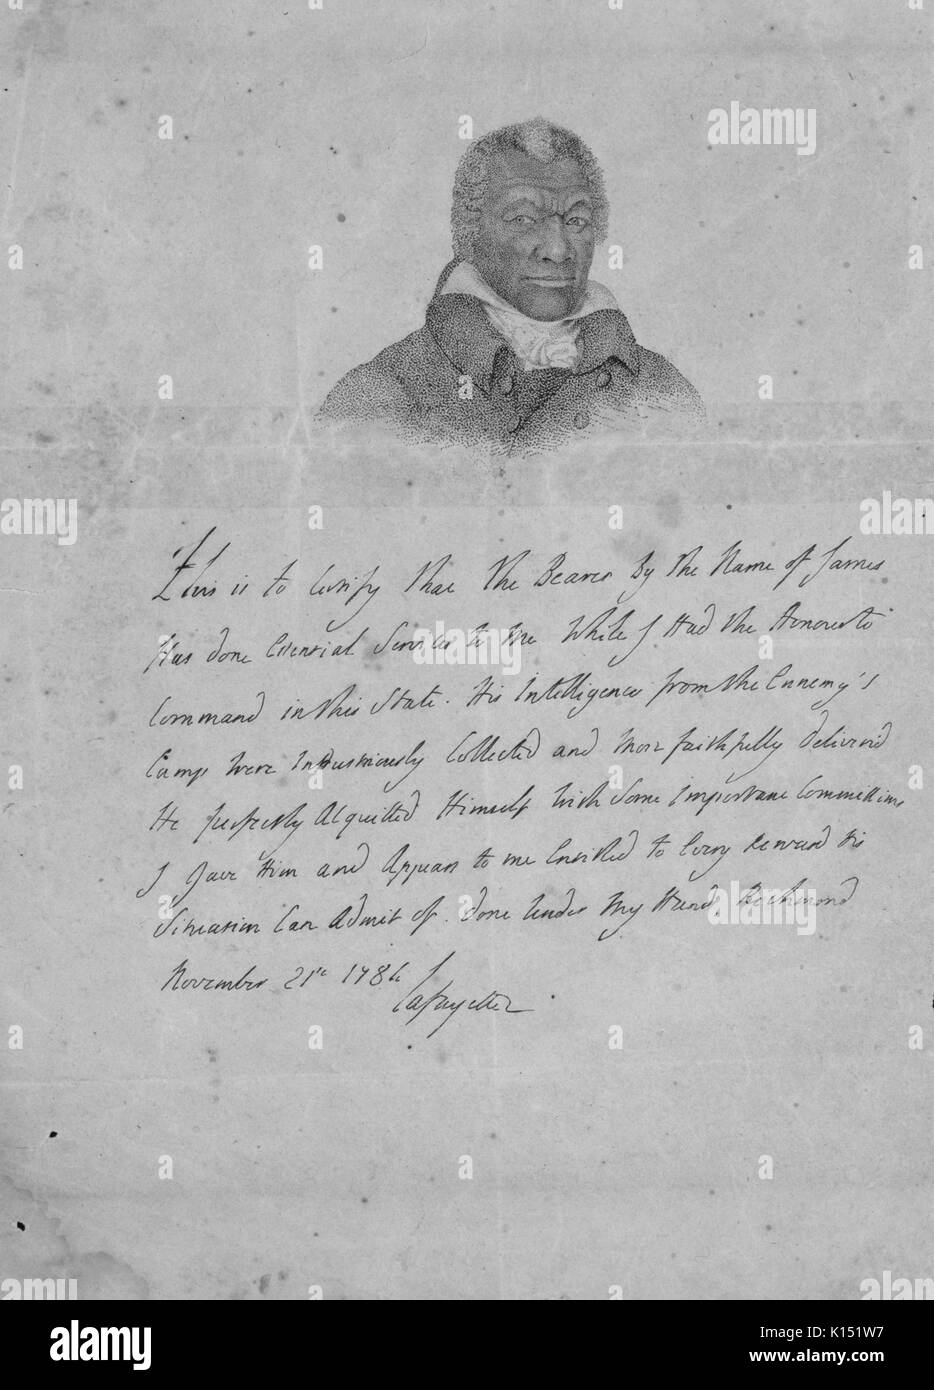 This is to Certify that the Bearer By the Name of James
Has done Essential Services to Me While I Had the Honour to
Command in this State. His Intelligences from the Ennemy's
Camp Were Industriously Collected and More faithfully deliver'd
He perfectly Acquitted Himself With Some Important Commissions
I Gave Him and Appears to me Entitled to Every Reward His
Situation Can Admit of. done Under My Hand, Richmond
November 21st 1784
Lafayette
alamy
Image ID: K151W7
www.alamy.com